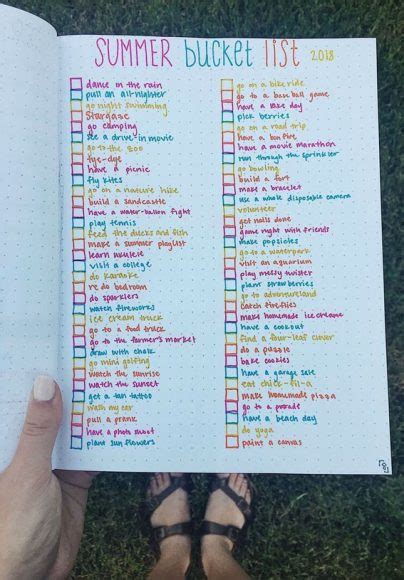 SUMMER bucket list 2018
dance in the rain
pull an all-nighter
go night swimming
stargaze
go camping
see a drive-in movie
go to the zoo
tye-dye
have a picnic
fly kites
go on a nature hike
build a sandcastle
have a water-balloon fight
play tennis
feed the ducks and fish
make a summer playlist
learn ukulele
visit a college
do karaoke
re do bedroom
do sparklers
watch fireworks
ice cream truck
go to a food truck
go to the farmer's market
draw with chalk
go mini golfing
watch the sunrise
watch the sunset
get a tan tattoo
wash my car
pull a prank
have a photo shoot
plant sunflowers
go on a bike ride
go to a baseball game
have a lake day
pick berries
go on a road trip
have a bonfire
have a movie marathon
run through the sprinkler
go bowling
build a fort
make a bracelet
use a whole disposable camera
volunteer
get nails done
game night with friends
make popsicles
go to a waterpark
visit an aquarium
play messy twister
plant strawberries
go to adventureland
catch fireflies
make homemade ice cream
have a cookout
find a four-leaf clover
do a puzzle
bake cookies
have a garage sale
eat chick-fil-a
make homemade pizza
go to a parade
have a beach day
do yoga
paint a canvas